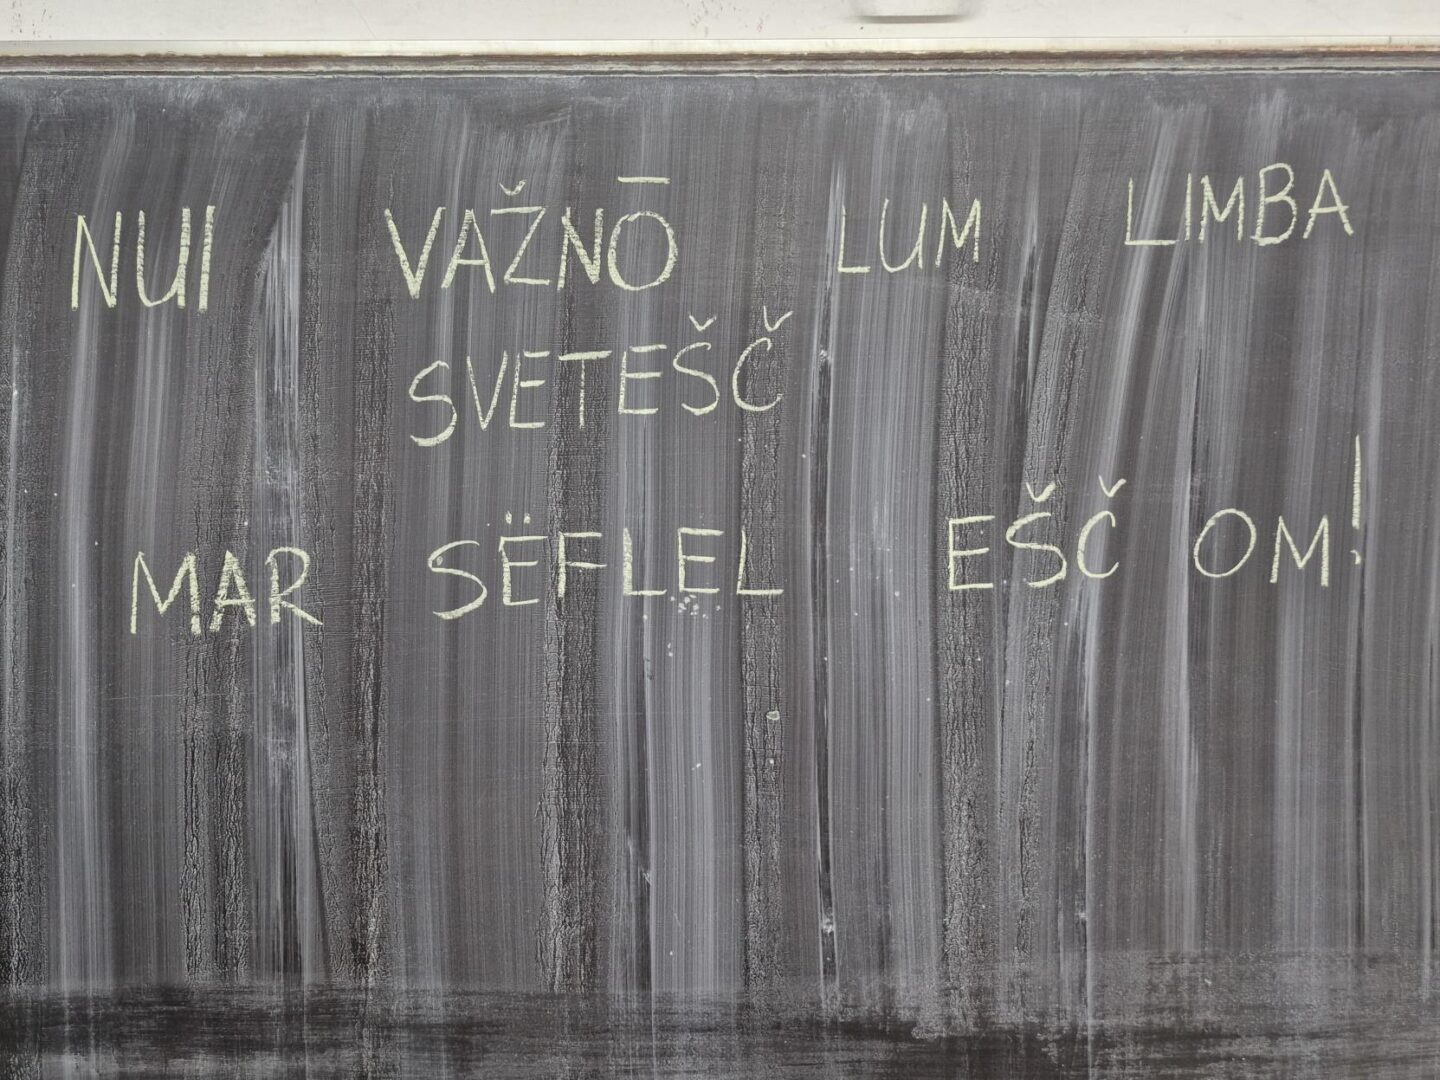 NUI VAŽNŌ LUM LIMBA
SVETEŠČ
MAR SËFLEL EŠČ OM!